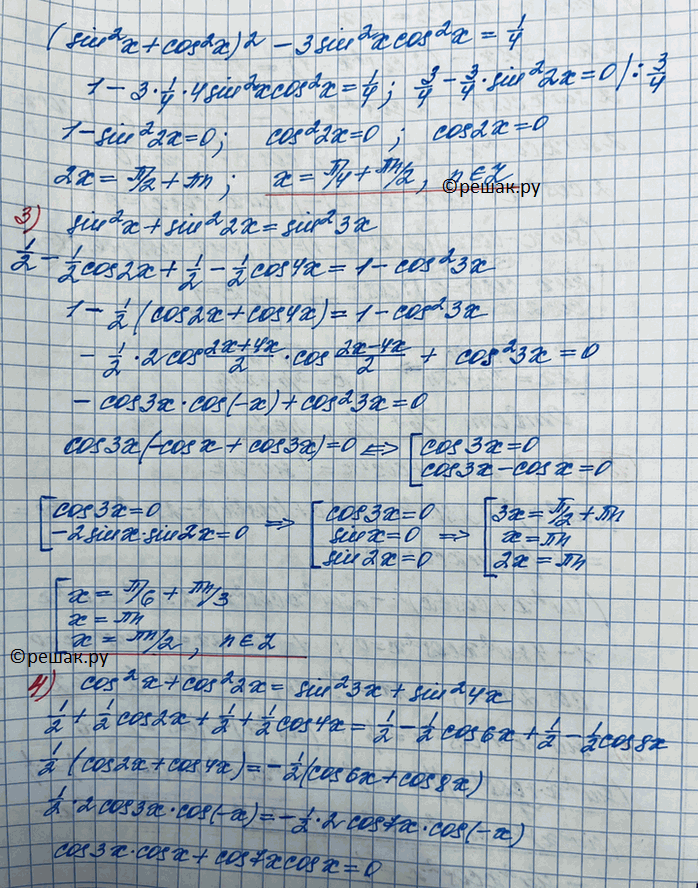 (sin²x+cos²x)2 − 3sin²xcos²x = 1/4
1−3·1/4·4sin²xcos²x=1/4; 3/4−3/4·sin²2x=0 |:3/4
1−sin²2x=0; cos²2x=0; cos2x=0
2x=π/2+πn; x=π/4+πn/2, n∈Z
©решак.ру
3) sin²x+sin²2x=sin²3x
1/2−1/2cos2x+1/2−1/2cos4x=1−cos²3x
1−1/2(cos2x+cos4x)=1−cos²3x
−1/2·2cos (2x+4x)/2·cos (2x−4x)/2+cos²3x=0
−cos3x·cos(−x)+cos²3x=0
cos3x(−cosx+cos3x)=0 ⟺ [cos3x=0
cos3x−cosx=0
[cos3x=0
−2sinx·sin2x=0 ⟹ [cos3x=0
sinx=0
sin2x=0 ⟹ [3x=π/2+πn
x=πn
2x=πn
[x=π/6+πn/3
x=πn
x=πn/2, n∈Z
©решак.ру
4) cos²x+cos²2x=sin²3x+sin²4x
1/2+1/2cos2x+1/2+1/2cos4x=1/2−1/2cos6x+1/2−1/2cos8x
1/2(cos2x+cos4x)=−1/2(cos6x+cos8x)
1/2·2cos3x·cos(−x)=−1/2·2cos7x·cos(−x)
cos3x·cosx+cos7xcosx=0